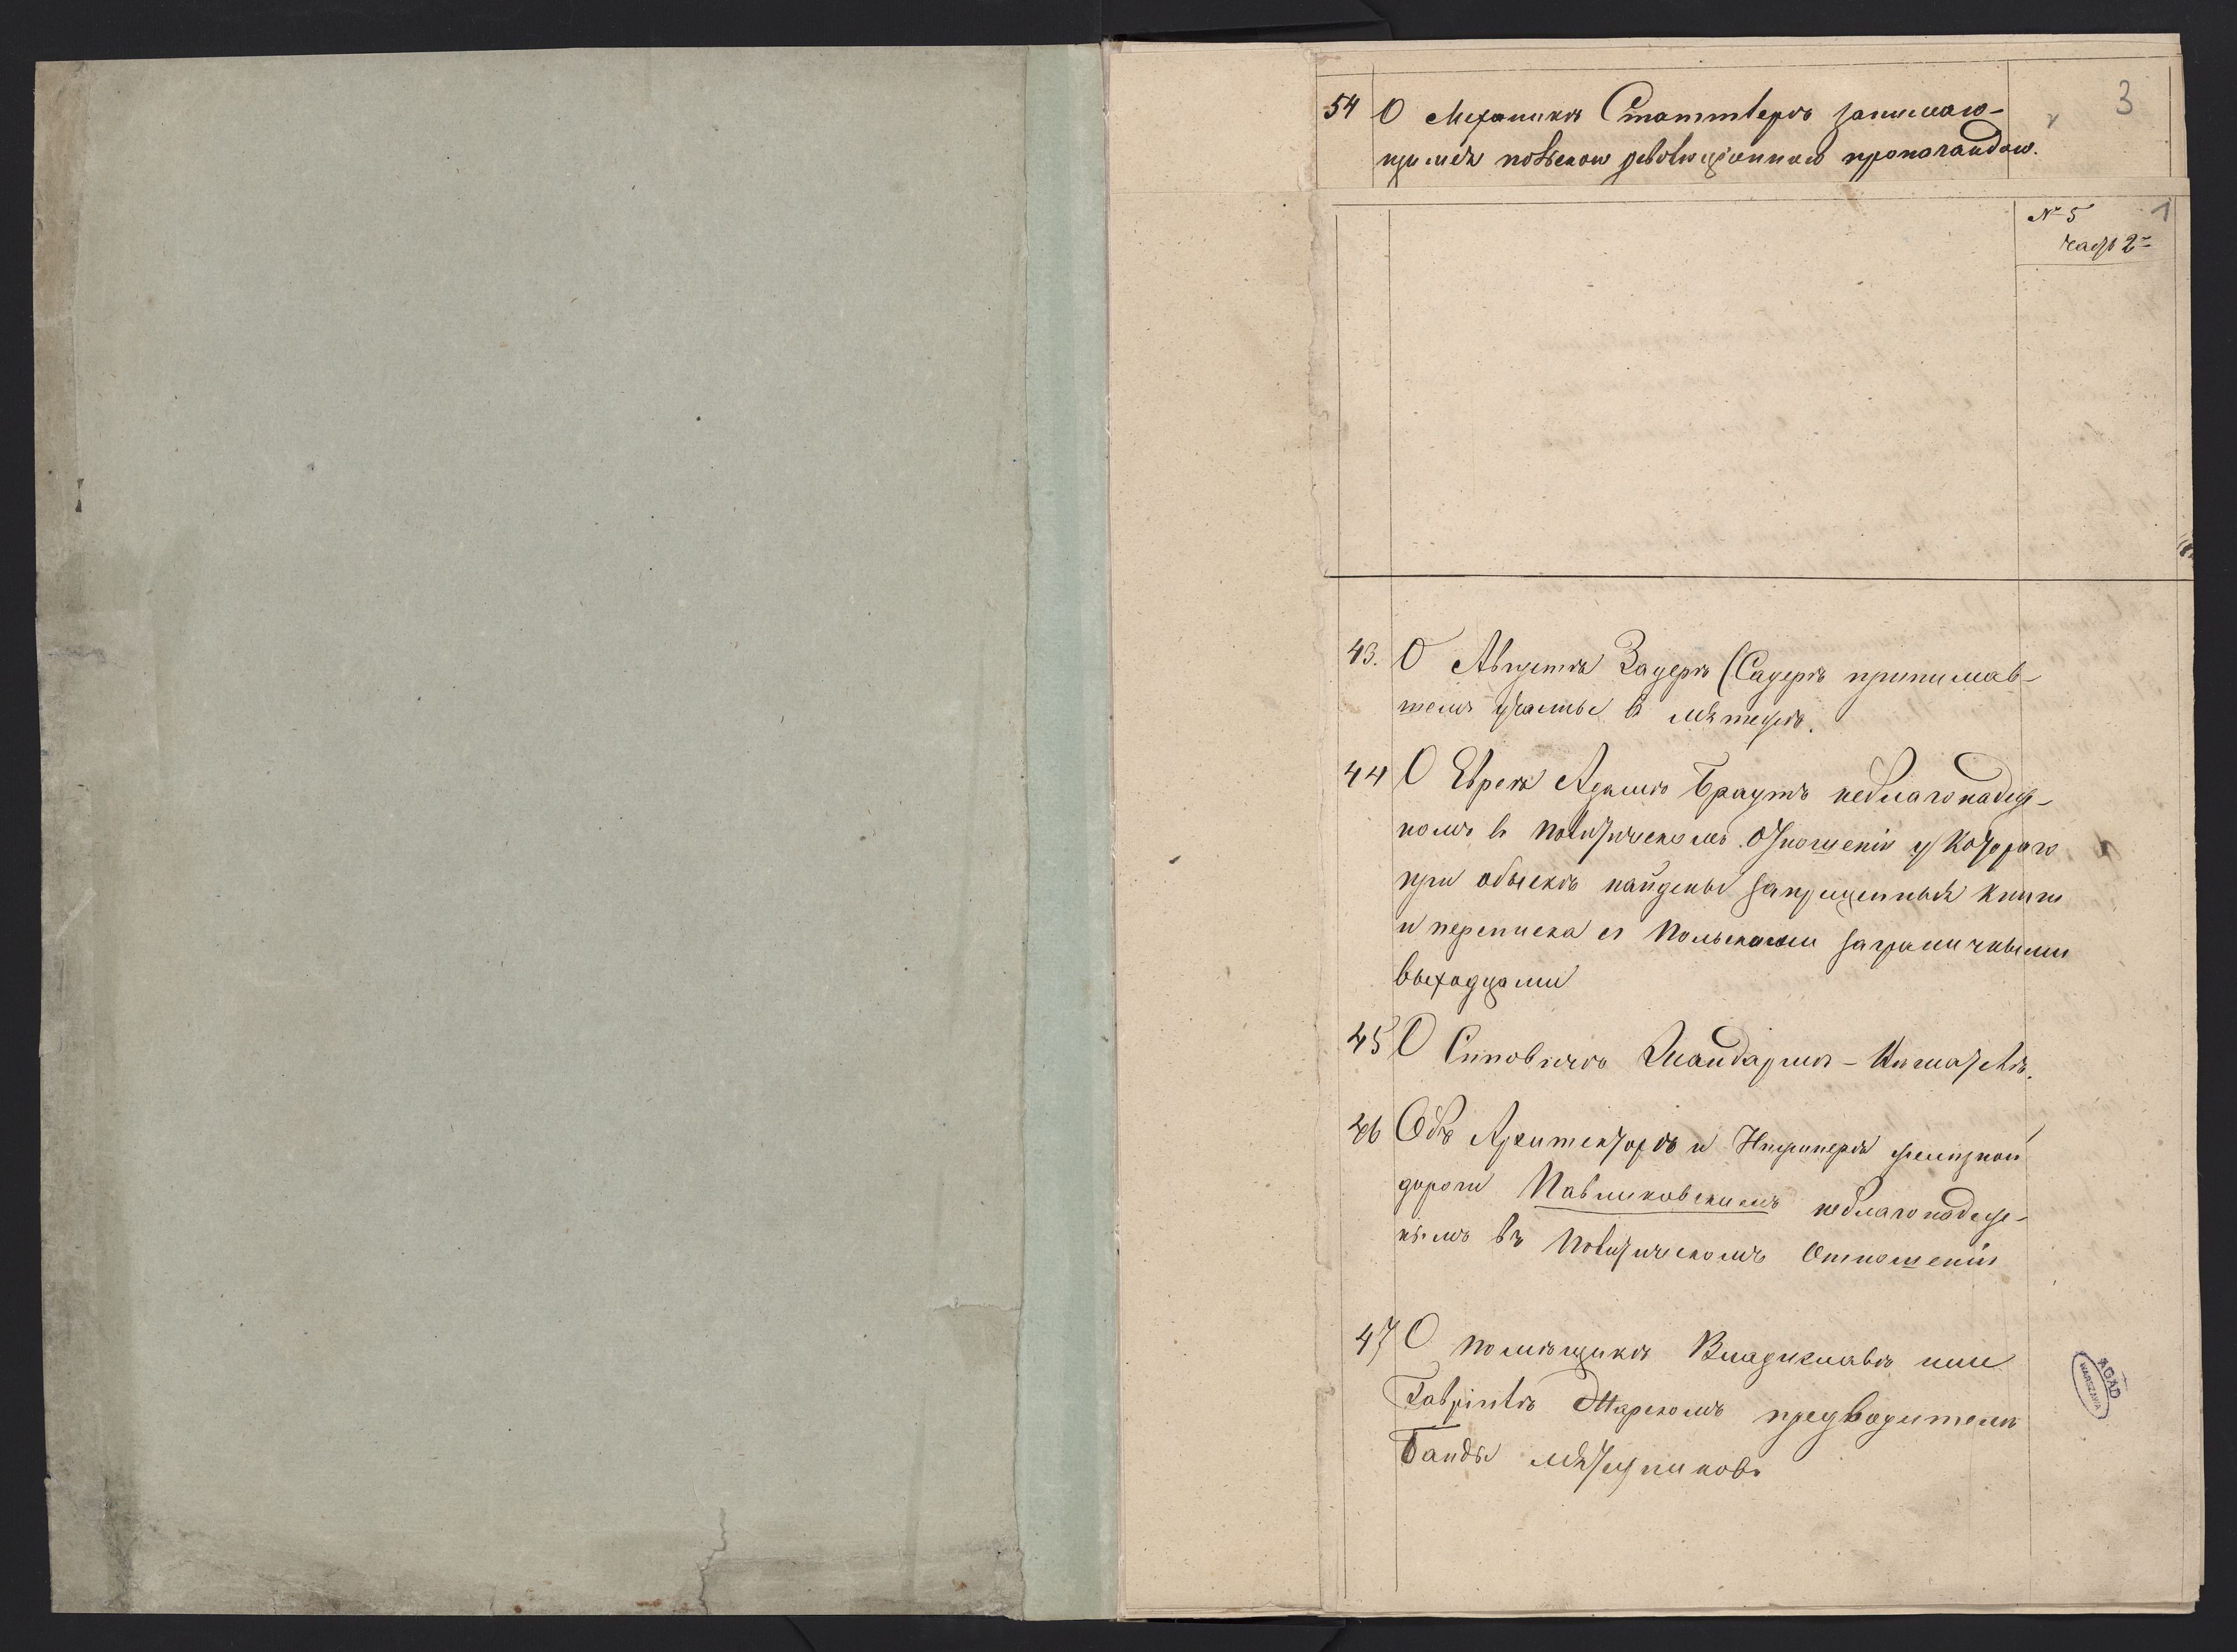 3
54 О Механикѣ Статтлерѣ занимаю-
щимся польскою революціонною пропагандою.
1
№ 5
часть 2я
43. О Августѣ Зауерѣ (Сауерѣ принимав-
шемъ участье въ мятежѣ.
44 О Евреѣ Адамѣ Браутѣ неблагонадеж-
номъ въ политическомъ отношеніи у котораго
при обыскѣ найдены запрещенныя книги
и переписка съ польскими заграничными
выходцами
45 О Сиповичѣ Жандармѣ-
46 Объ Архитекторѣ и Инженерѣ желѣзной
дороги Павликовскимъ неблагонадеж-
нымъ въ политическомъ отношеніи
47 О помѣщикѣ Владиславѣ или
Габріелѣ предводителѣ
банды мятежниковъ
AGAD
WARSZAWA